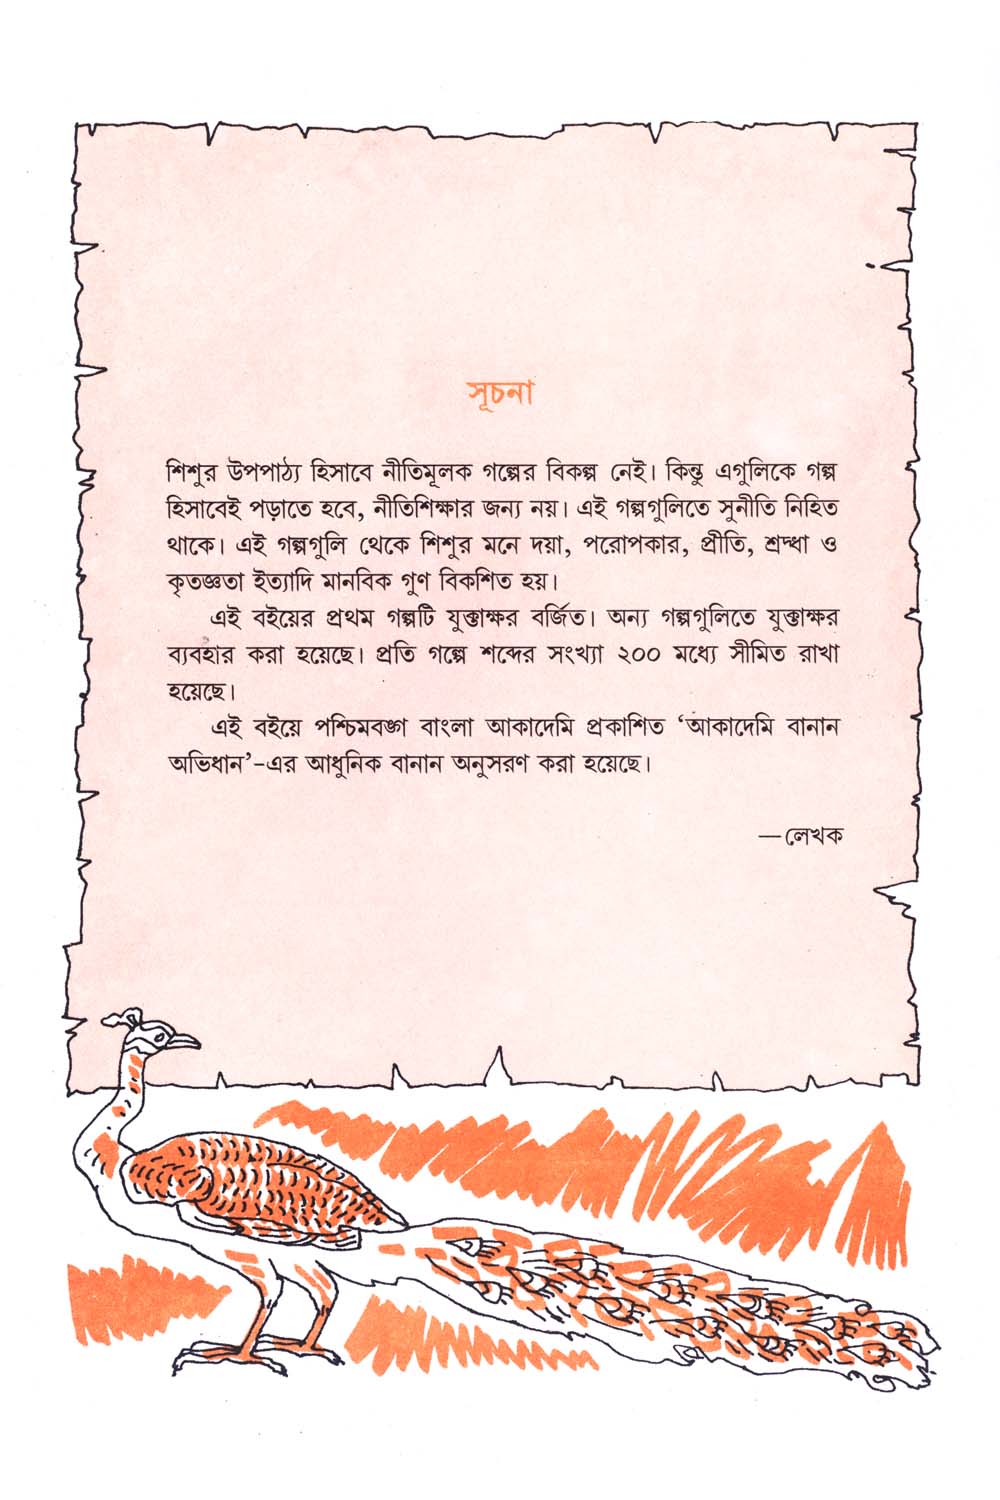 সূচনা
শিশুর উপপাঠ্য হিসাবে নীতিমূলক গল্পের বিকল্প নেই। কিন্তু এগুলিকে গল্প
হিসাবেই পড়াতে হবে, নীতিশিক্ষার জন্য নয়। এই গল্পগুলিতে সুনীতি নিহিত
থাকে। এই গল্পগুলি থেকে শিশুর মনে দয়া, পরোপকার, প্রীতি, শ্রদ্ধা ও
কৃতজ্ঞতা ইত্যাদি মানবিক গুণ বিকশিত হয়।
এই বইয়ের প্রথম গল্পটি যুক্তাক্ষর বর্জিত। অন্য গল্পগুলিতে যুক্তাক্ষর
ব্যবহার করা হয়েছে। প্রতি গল্পে শব্দের সংখ্যা ২০০ মধ্যে সীমিত রাখা
হয়েছে।
এই বইয়ে পশ্চিমবঙ্গ বাংলা আকাদেমি প্রকাশিত ‘আকাদেমি বানান
অভিধান’-এর আধুনিক বানান অনুসরণ করা হয়েছে।
—লেখক